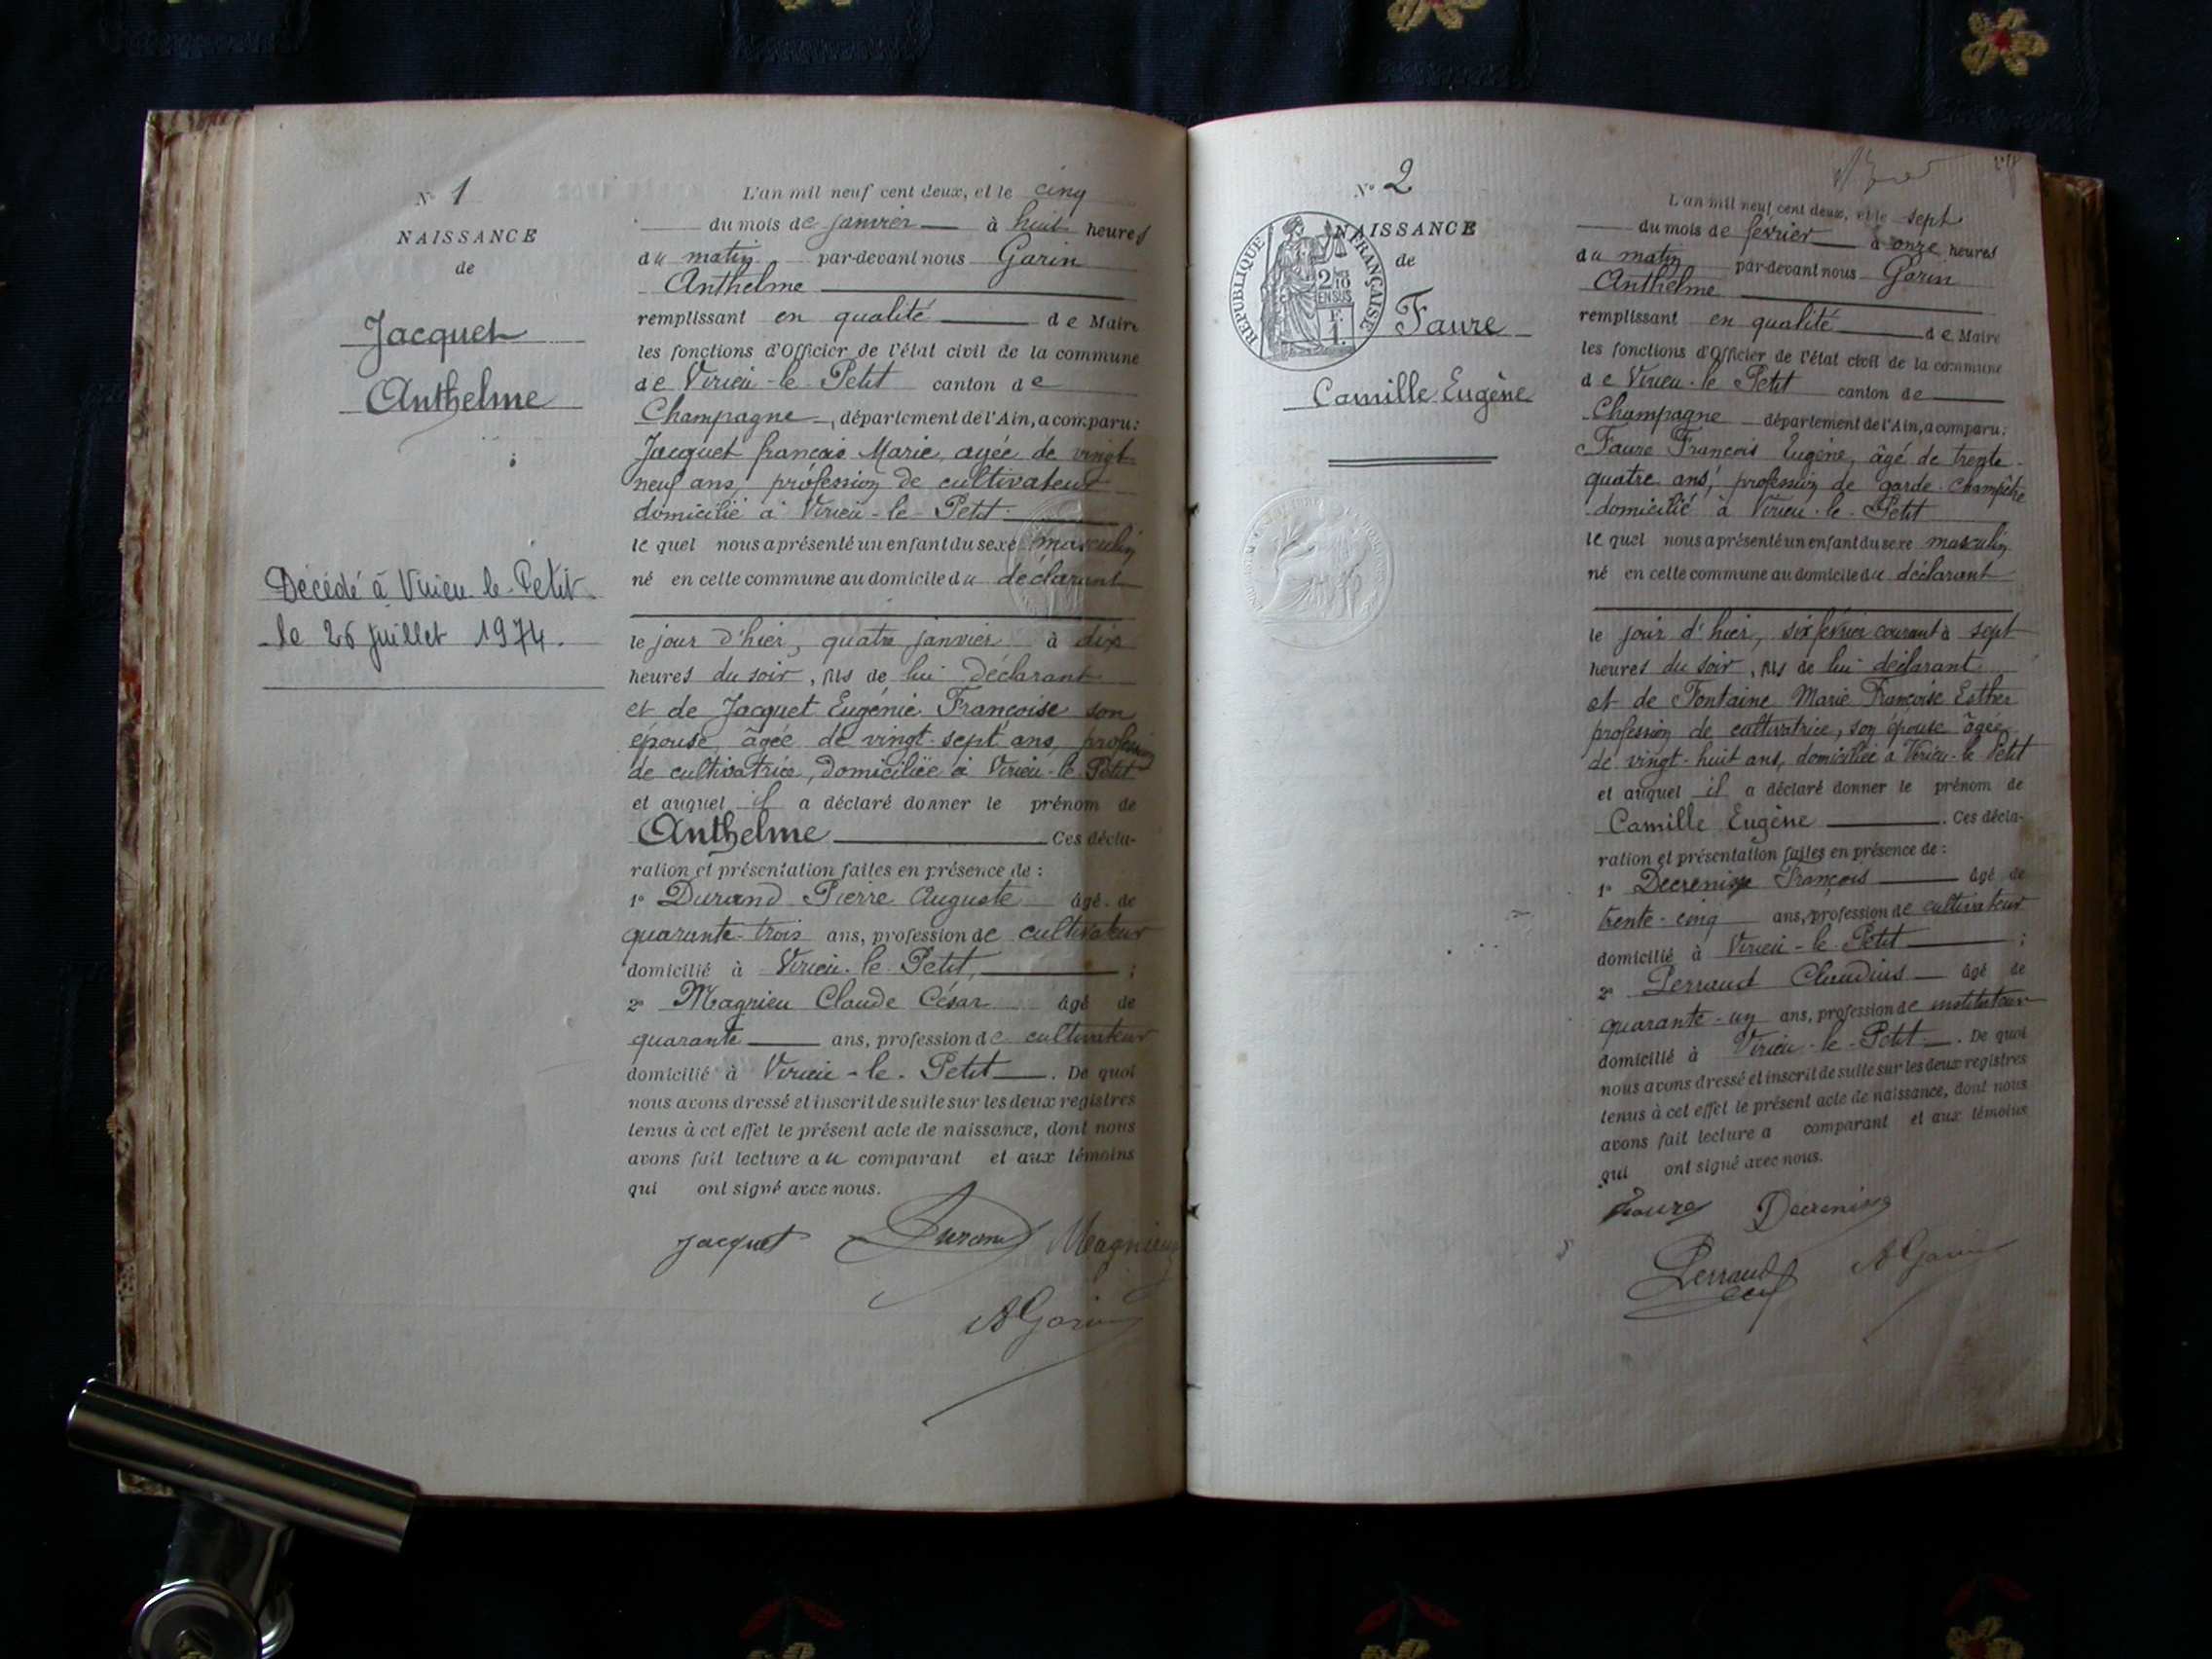 N° 1
NAISSANCE
de
Jacquet
Anthelme
Décédé à Virieu-le-Petit
le 26 juillet 1974.
L'an mil neuf cent deux, et le cinq
du mois de janvier à huit heures
du matin par-devant nous Garin
Anthelme
remplissant en qualité de Maire
les fonctions d'Officier de l'état civil de la commune
de Virieu-le-Petit canton de
Champagne, département de l'Ain, a comparu:
Jacquet françois Marie, agée de vingt-
neuf ans, profession de cultivateur
domicilié à Virieu-le-Petit
lequel nous a présenté un enfant du sexe masculin
né en cette commune au domicile du déclarant
le jour d'hier, quatre janvier à dix
heures du soir, fils de lui déclarant
et de Jacquet Eugénie Françoise son
épouse, âgée de vingt-sept ans, profession
de cultivatrice, domiciliée à Virieu-le-Petit
et auquel il a déclaré donner le prénom de
Anthelme Ces décla-
ration et présentation faites en présence de :
1° Durand Pierre Auguste âgé de
quarante-trois ans, profession de cultivateur
domicilié à Virieu-le-Petit, ;
2° Magnieu Claude César âgé de
quarante ans, profession de cultivateur
domicilié à Virieu-le-Petit. De quoi
nous avons dressé et inscrit de suite sur les deux registres
tenus à cet effet le présent acte de naissance, dont nous
avons fait lecture au comparant et aux témoins
qui ont signé avec nous.
Jacquet Durand Magnieu
A Garin
N° 2
NAISSANCE
de
RÉPUBLIQUE FRANÇAISE
2/10
EN SUS
F.
1.
Faure
Camille Eugène
L'an mil neuf cent deux, et le sept
du mois de février à onze heures
du matin par-devant nous Garin
Anthelme
remplissant en qualité de Maire
les fonctions d'Officier de l'état civil de la commune
de Virieu-le-Petit canton de
Champagne département de l'Ain, a comparu:
Faure François Eugène, âgé de trente-
quatre ans, profession de garde-champêtre
domicilié à Virieu-le-Petit
lequel nous a présenté un enfant du sexe masculin
né en cette commune au domicile du déclarant
le jour d'hier, six février courant à sept
heures du soir, fils de lui déclarant
et de Fontaine Marie Françoise Esther
profession de cultivatrice, son épouse âgée
de vingt-huit ans, domiciliée à Virieu-le-Petit
et auquel il a déclaré donner le prénom de
Camille Eugène. Ces décla-
ration et présentation faites en présence de :
1° Decrenisse François âgé de
trente-cinq ans, profession de cultivateur
domicilié à Virieu-le-Petit ;
2° Perraud Claudius âgé de
quarante-un ans, profession de instituteur
domicilié à Virieu-le-Petit. De quoi
nous avons dressé et inscrit de suite sur les deux registres
tenus à cet effet le présent acte de naissance, dont nous
avons fait lecture a comparant et aux témoins
qui ont signé avec nous.
Faure Decrenisse
Perraud A Garin